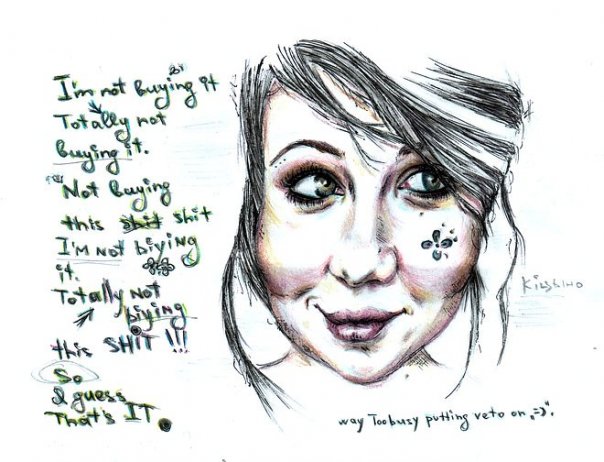 I'm not buying it
Totally not
buying it.
Not buying
this shit shit
I'M NOT biying
it.
Totally Not
biying
this SHIT !!!
So
I guess
That's IT.
way Too busy putting veto on